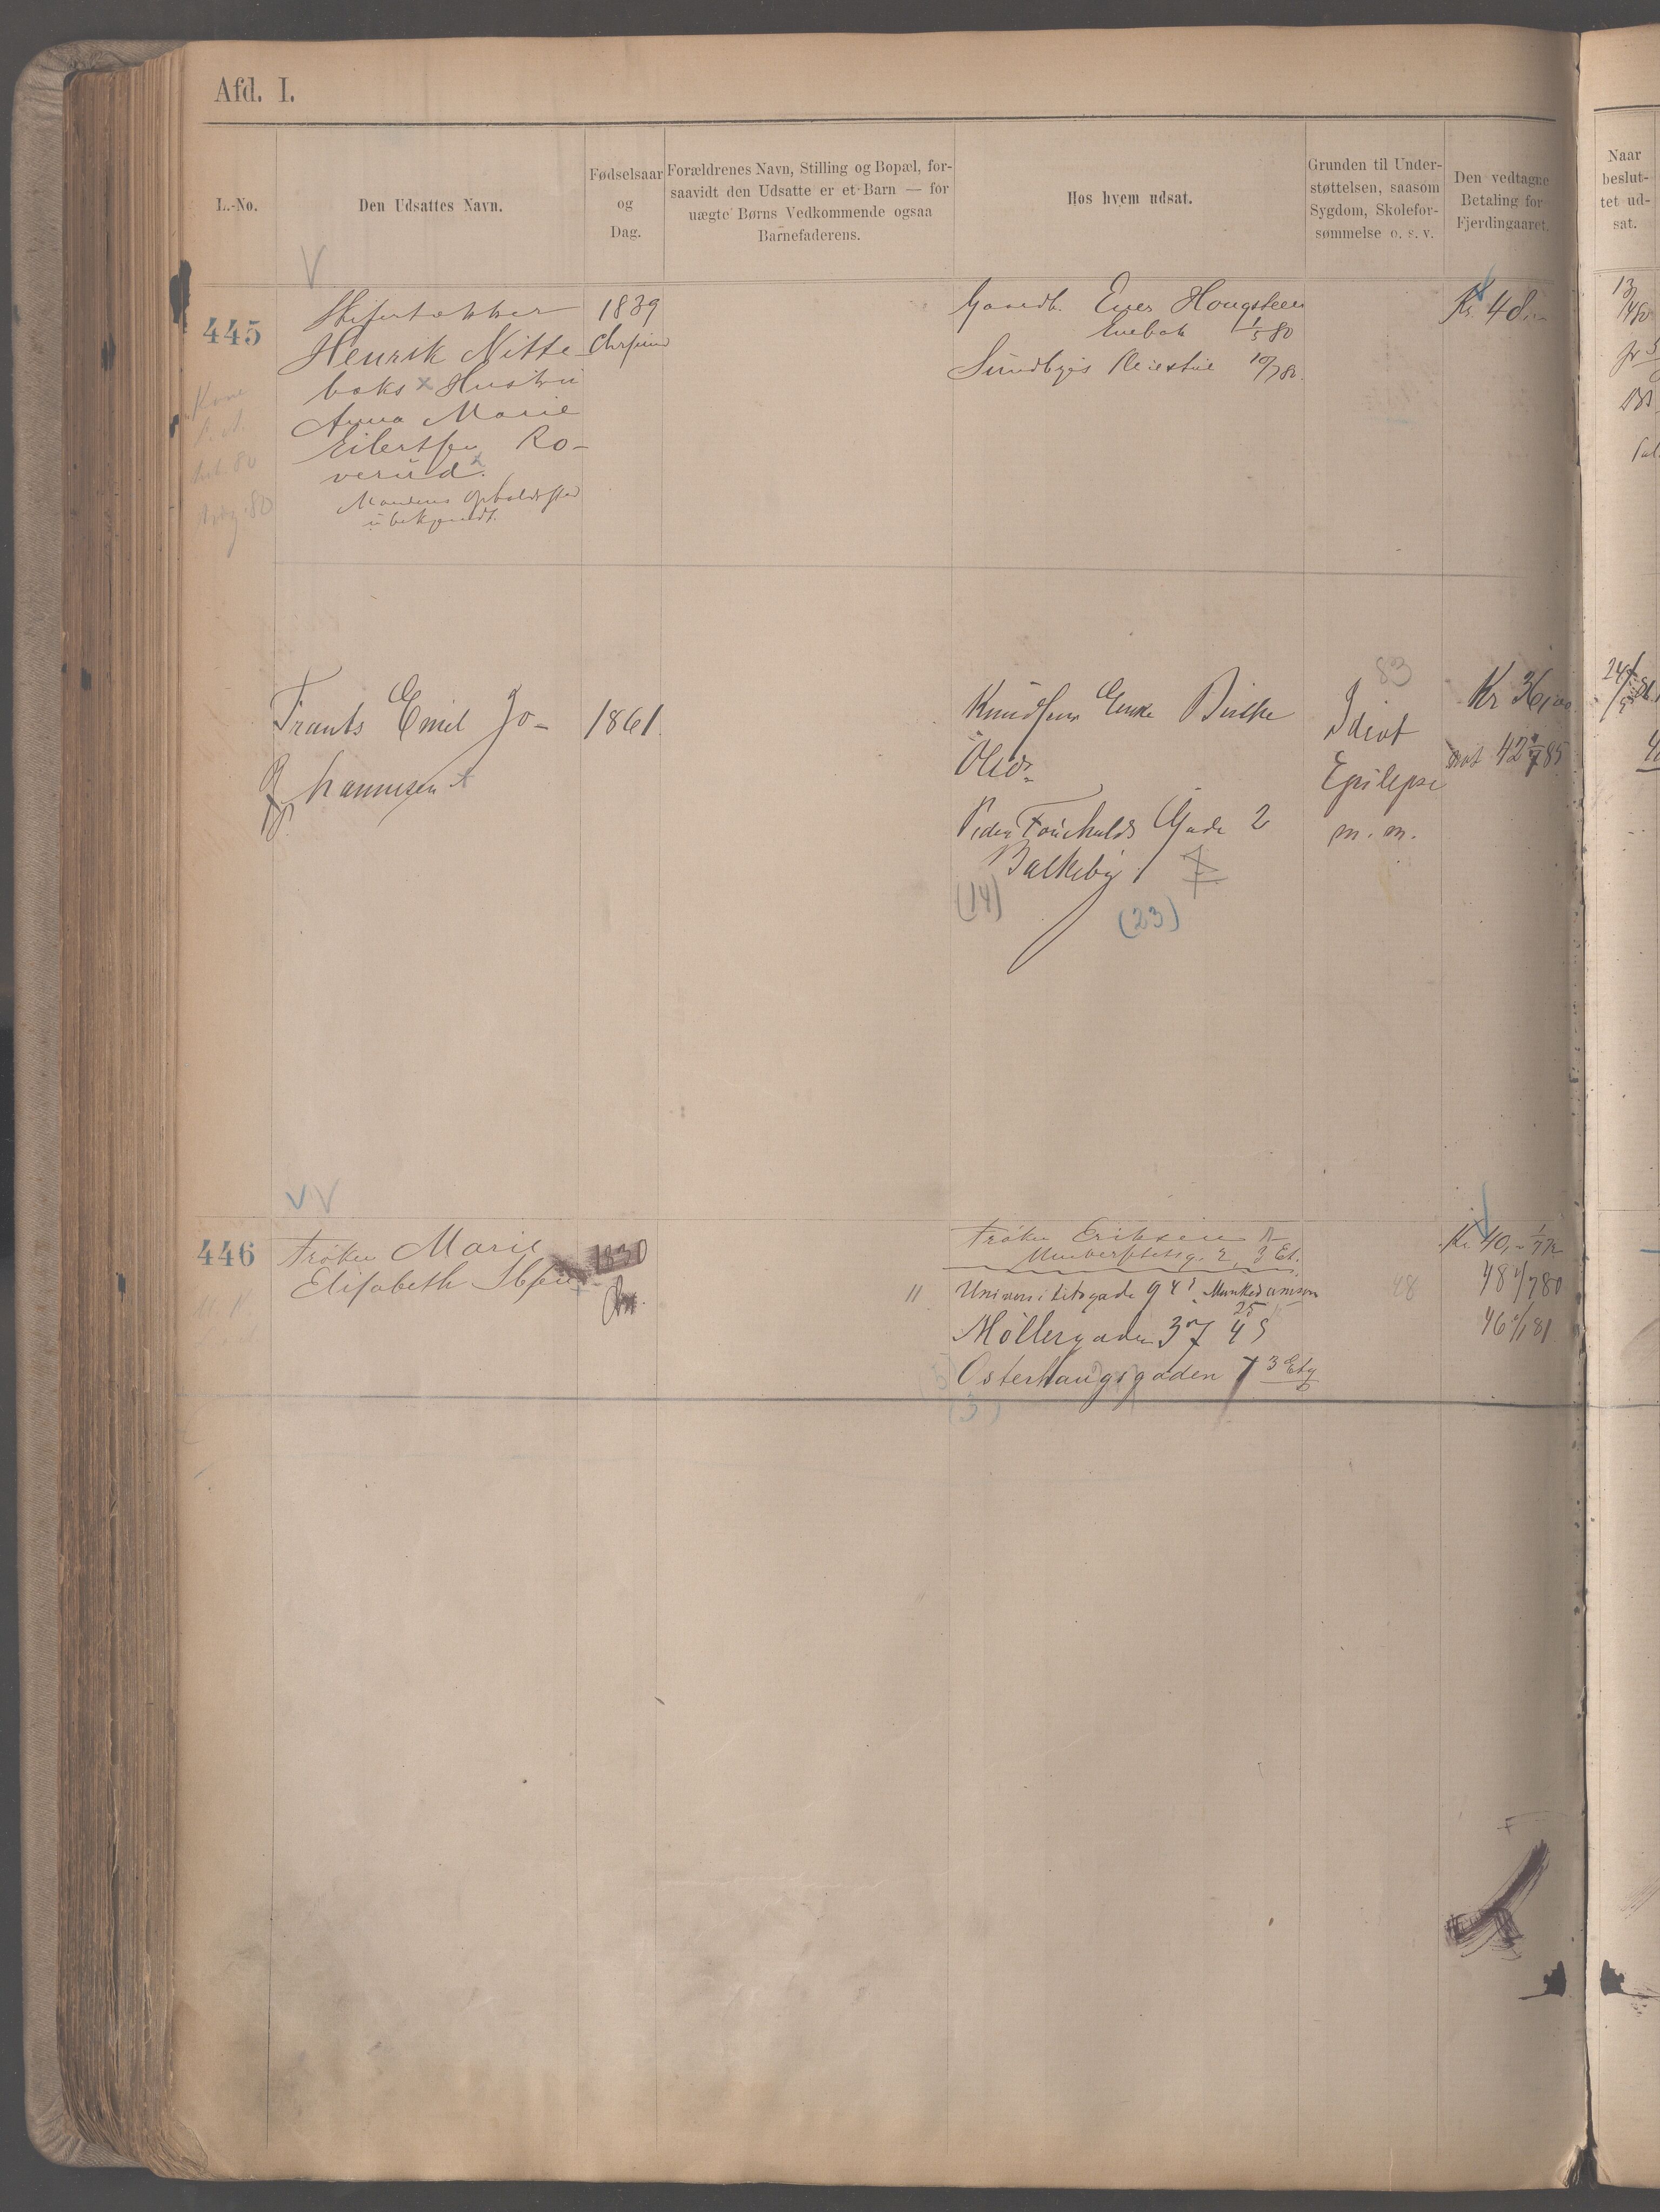 Afd. I.
L.-No.
Den Udsattes Navn.
Fødselsaar
og
Dag.
Forældrenes Navn, Stilling og Bopæl, for-
saavidt den Udsatte er et Barn — for
uægte Børns Vedkommende ogsaa
Barnefaderens.
Hos hvem udsat.
Grunden til Under-
støttelsen, saasom
Sygdom, Skolefor-
sømmelse o. s. v.
Den vedtagne
Betaling for
Fjerdingaaret.
Naar
beslut-
tet ud-
sat.
445
Skifertækker
Henrik Nitte-
boks x Hustru
Anna Marie
Eilertsen Ro-
verud x
Mandens Opholdssted
ubekjendt.
1839
Kone
80
80
Gaardb. Even Hougsteen
Enebak 1/5 80
Sundbyes Pleiestue 10/7 80.
Kr. 48
Frants Emil Jo-
hannesen x
1861.
Knudsens Enke Birthe
Olsd.
Gade 2
Balkeby
(14)
(23)
83
Idiot
Epilepsi
m. m.
Kr 36,00
42 85
446
Frøken Marie
Elisabeth Ibsen
1830
Frøken Eriksen
Universitetsg. 2, 3 Et.
11 Universitetsgade 9 Munkedamsvn
25
Möllergaden 37 4 S
Osterhaugsgaden 7 3 Etg
(3)
48
Kr 40,-
48 1/7 80
46 81